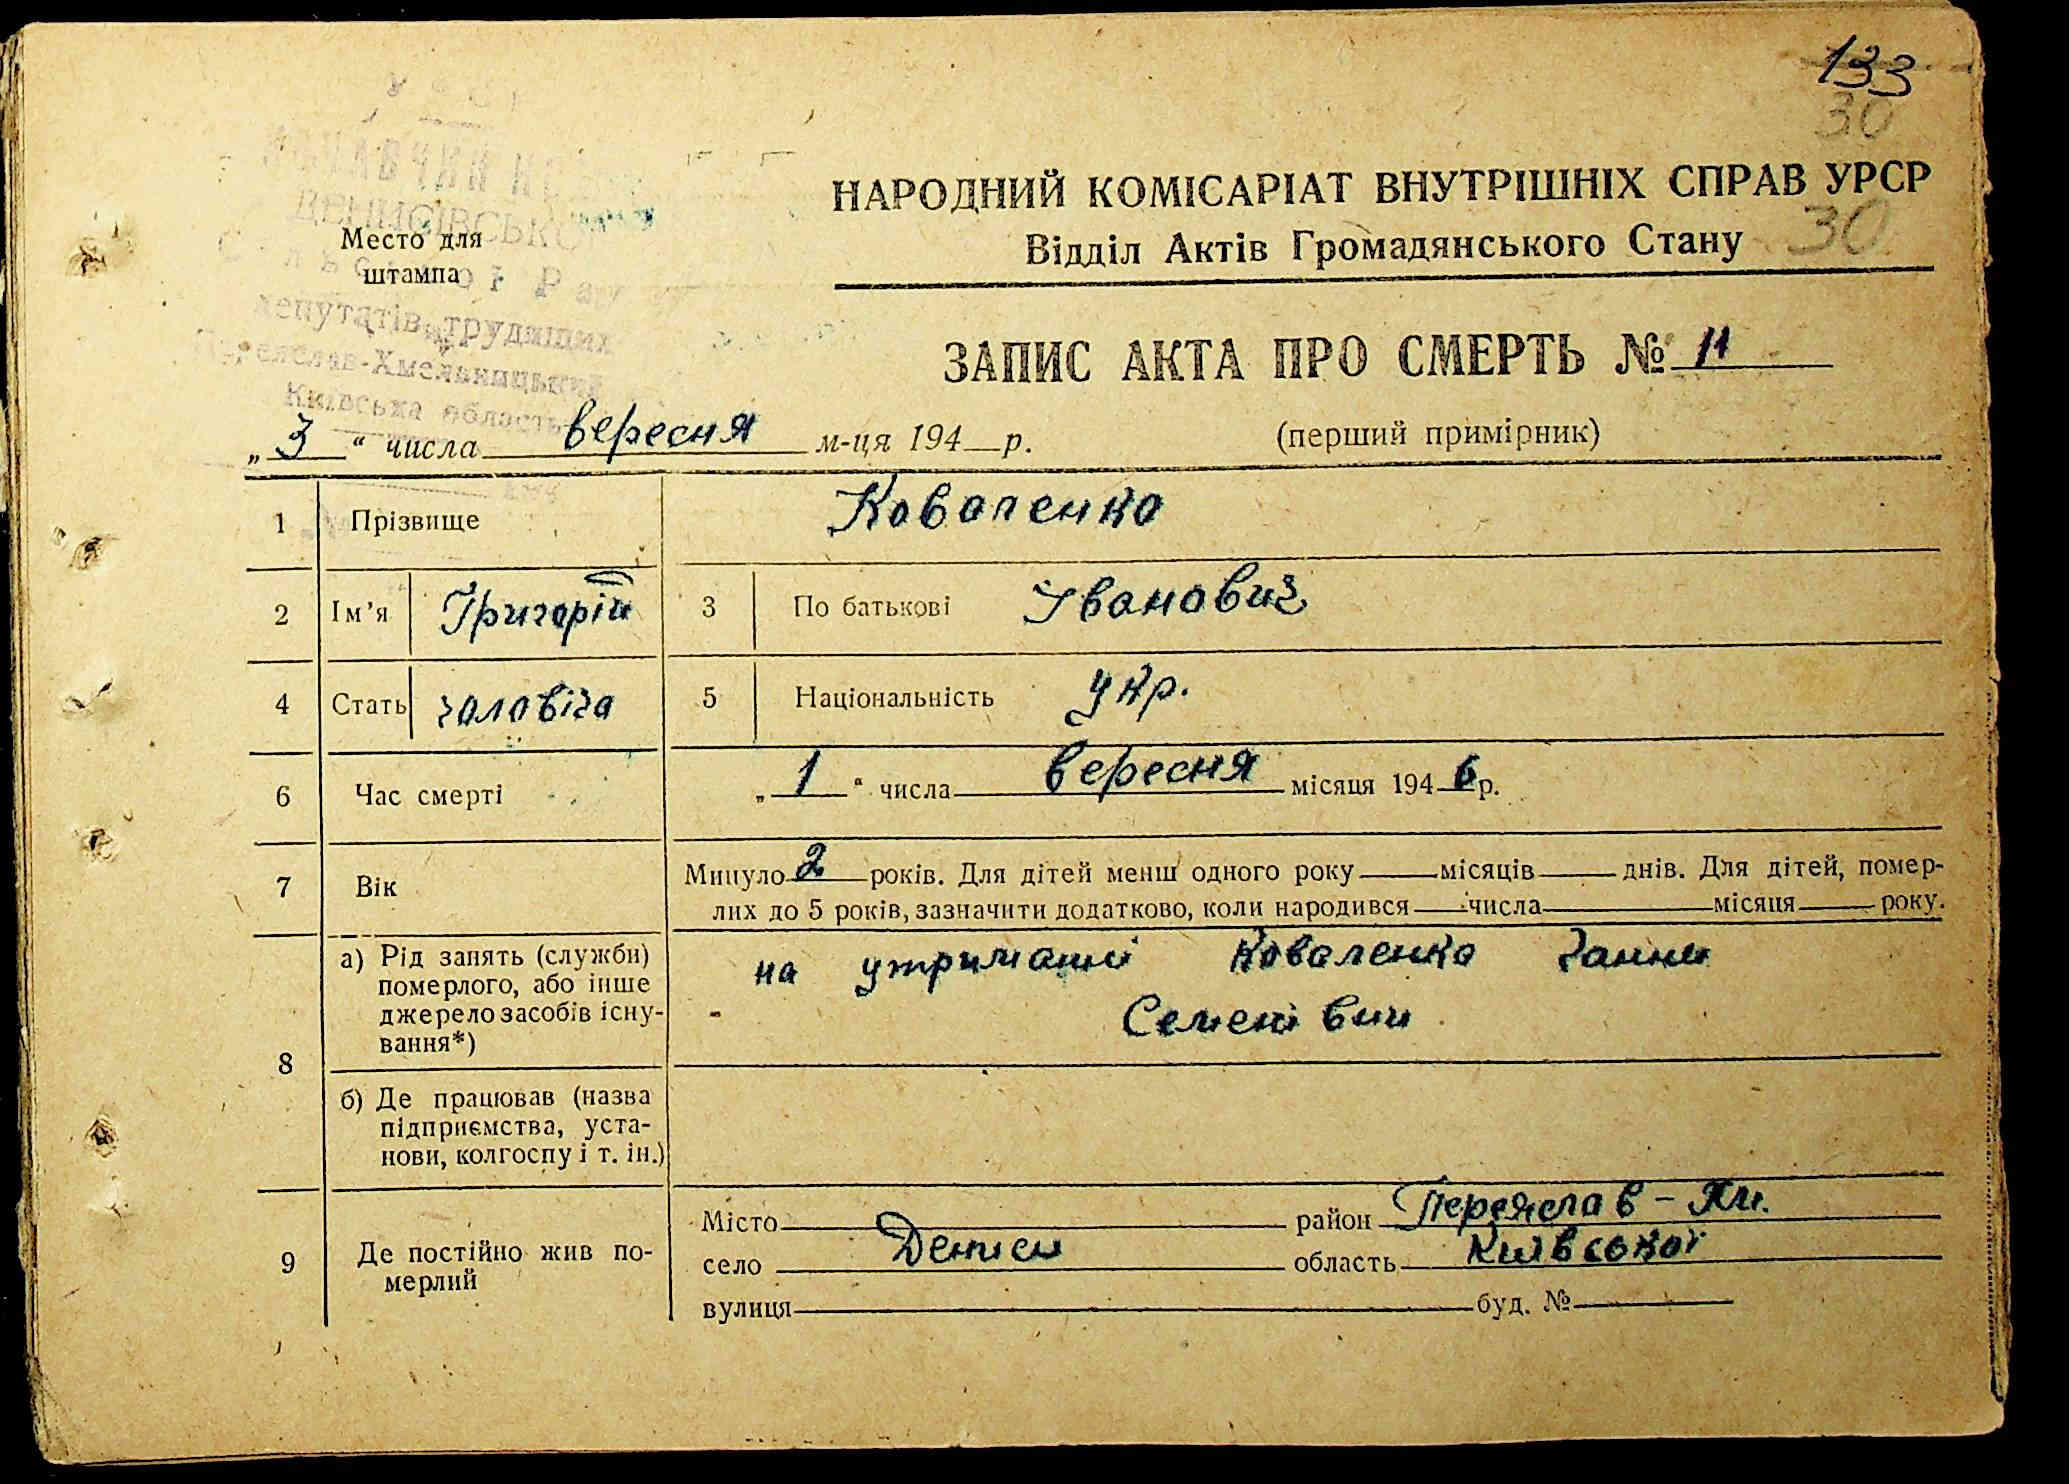 133
30
НАРОДНИЙ КОМІСАРІАТ ВНУТРІШНІХ СПРАВ УРСР
30
Відділ Актів Громадянського Стану
ДЕНИСІВСЬКО
Место для
штампа
депутатів трудящих
Переяслав-Хмельницький
Київська область
ЗАПИС АКТА ПРО СМЕРТЬ № 11
„3“ числа вересня м-ця 194 р.
(перший примірник)
1 Прізвище Коваленко
2 Ім’я Григорій 3 По батькові Іванович
4 Стать чоловіча 5 Національність укр.
6 Час смерті „1“ числа вересня місяця 1946 р.
7 Вік Минуло 2 років. Для дітей менш одного року місяців днів. Для дітей, помер-
лих до 5 років, зазначити додатково, коли народився числа місяця року.
8 а) Рід занять (служби)
померлого, або інше
джерело засобів існу-
вання*)
на утриманні Коваленко Ганни
Семенівни
б) Де працював (назва
підприємства, уста-
нови, колгоспу і т. ін.)
9 Де постійно жив по-
мерлий
Місто район Переяслав-Хм.
село Дениси область Київської
вулиця буд. №